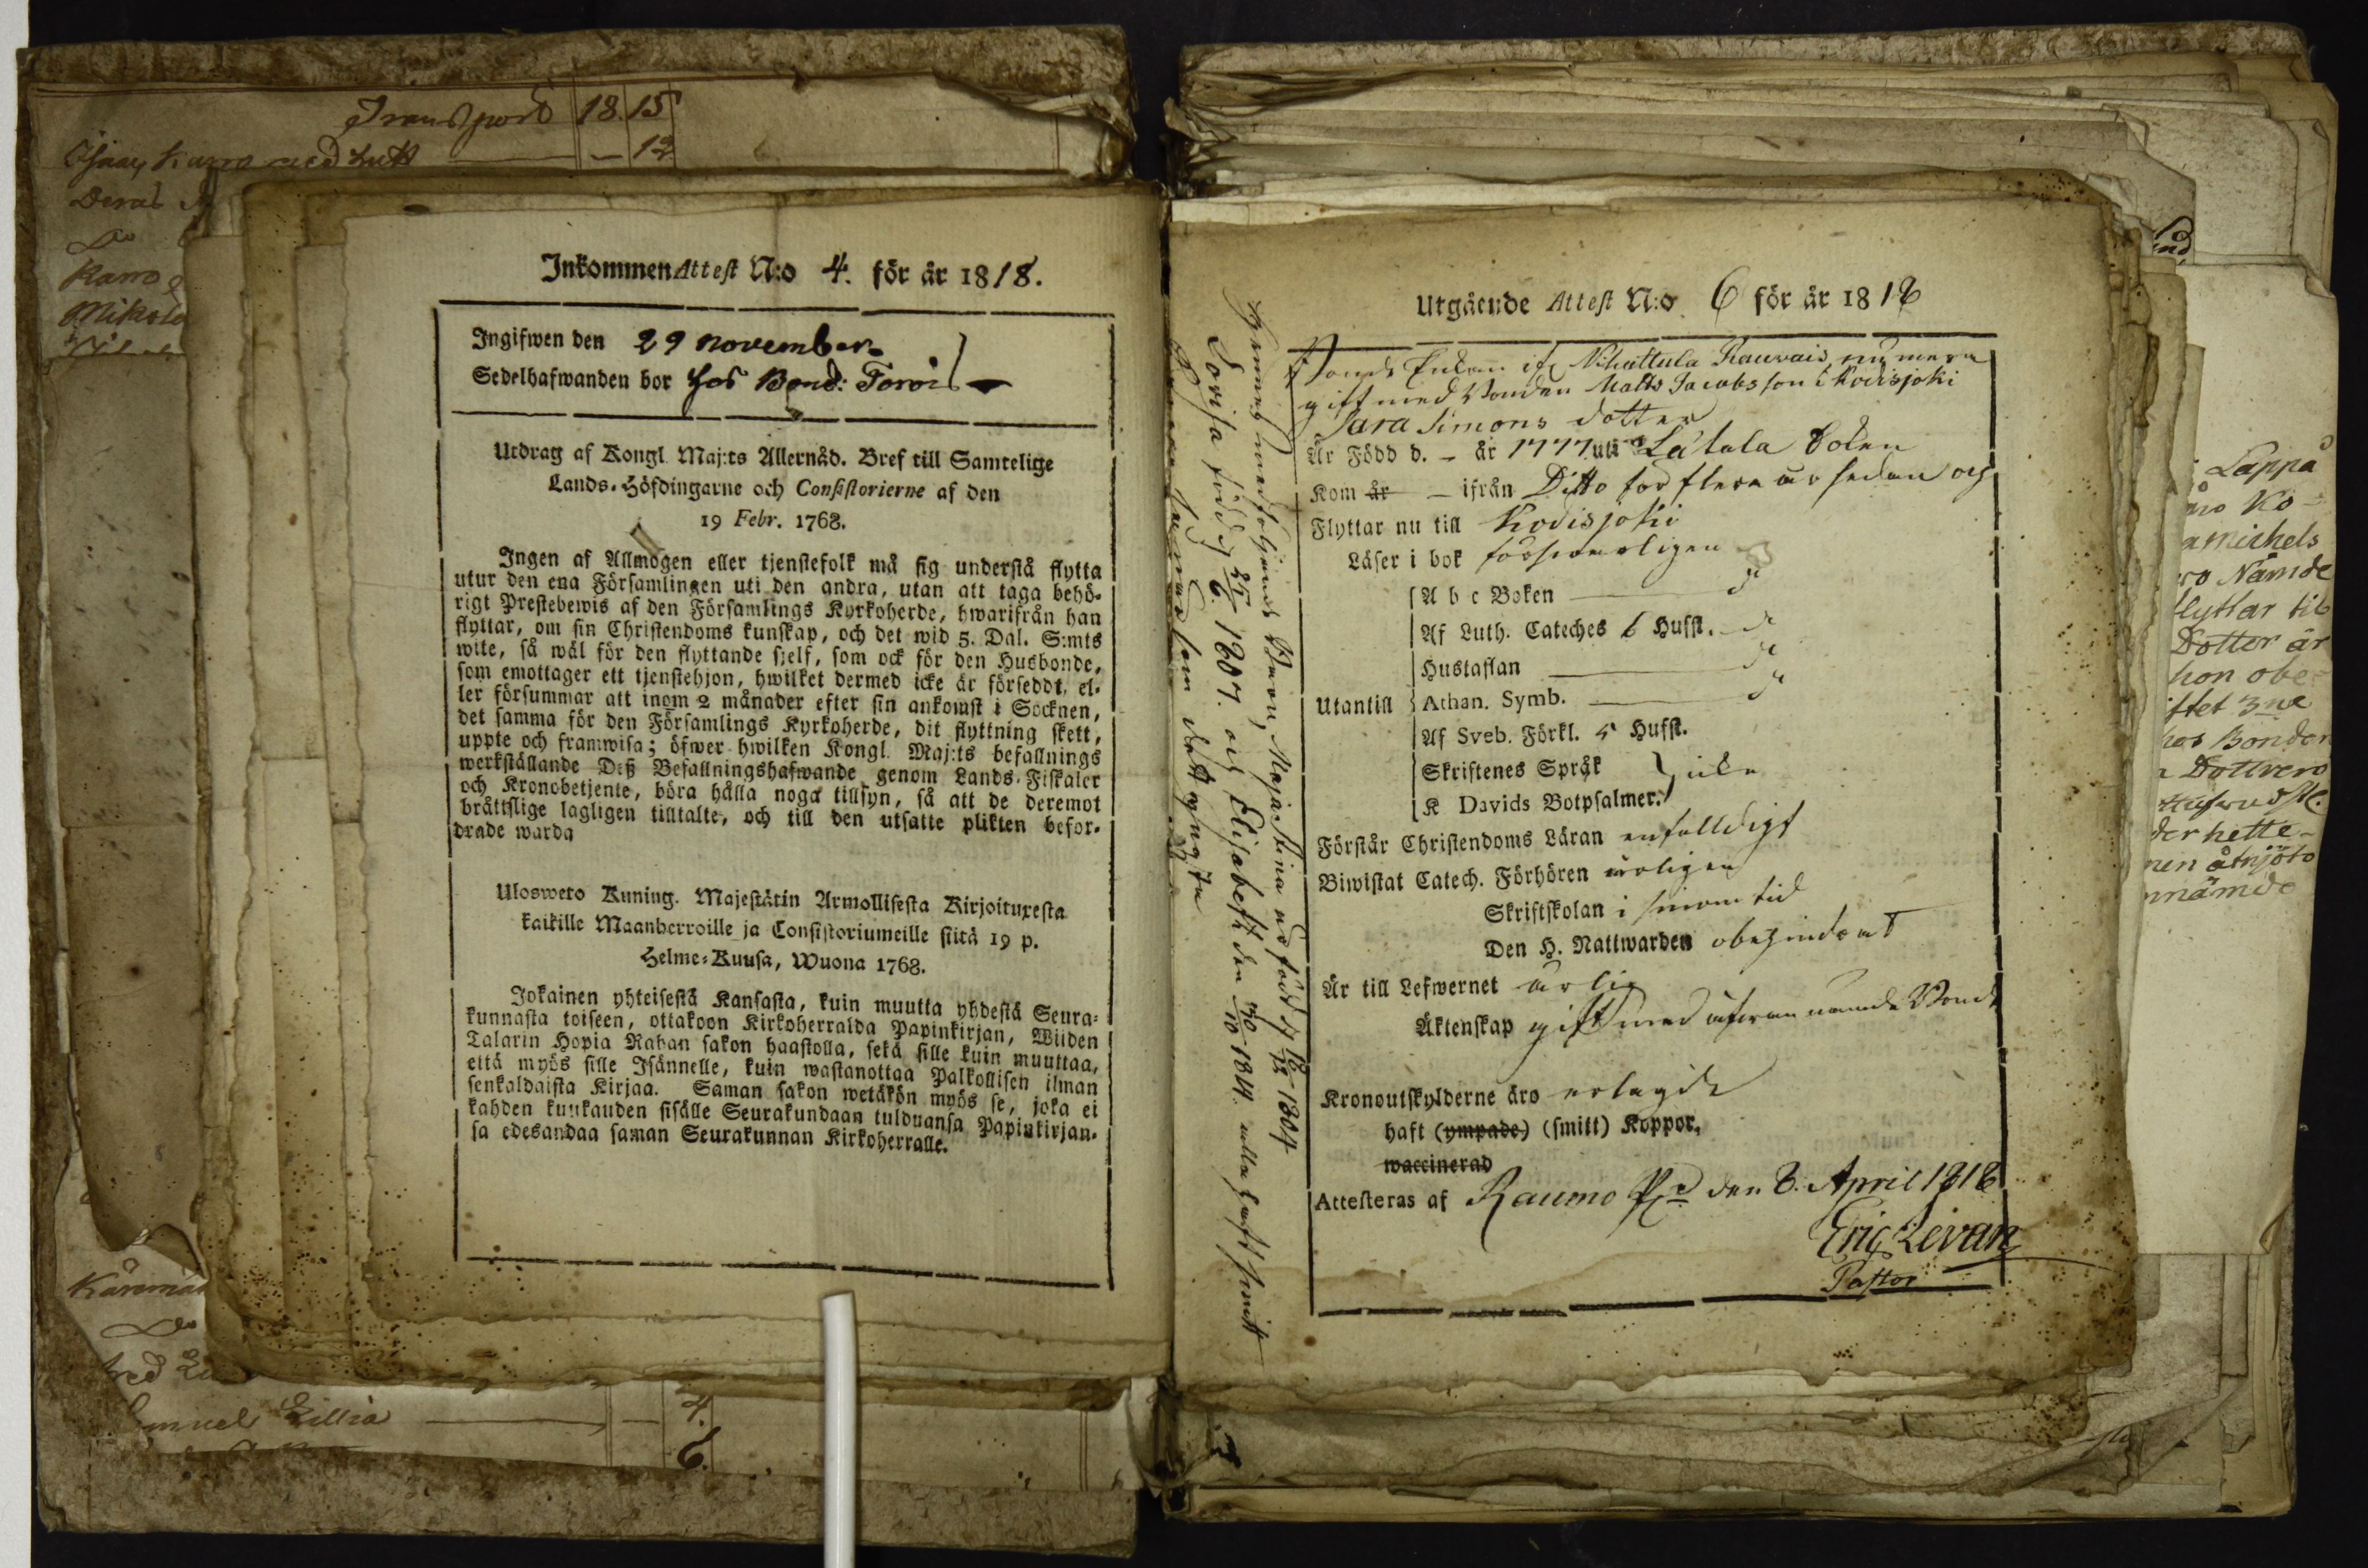 Transport 18. 15
med
Inkommen Attest N:o 4. för år 1818.
Ingifwen den 29 november
Sedelhafwanden bor hos Bond:
Utdrag af Kongl Maj:ts Allernåd. Bref till Samtelige
Lands-Höfdingarne och Consistorierne af den
19 Febr. 1768.
Ingen af Allmogen eller tjenstefolk må sig understå flytta
utur den ena Församlingen uti den andra, utan att taga behö-
rigt Prestebewis af den Församlings Kyrkoherde, hwarifrån han
flyttar, om sin Christendoms kunskap, och det wid 5. Dal. S:mts
wite, så wäl för den flyttande sjelf, som ock för den Husbonde,
som emottager ett tjenstehjon, hwilket dermed icke är försedt, el-
ler försummar att inom 2 månader efter sin ankomst i Socknen,
det samma för den Församlings Kyrkoherde, dit flyttning skett,
uppte och framwisa; öfwer hwilken Kongl. Maj:ts befallnings
werkställande Deß Befallningshafwande genom Lands-Fiskaler
och Kronobetjente, böra hålla noga tillsyn, så att de deremot
bråttslige lagligen tilltalte, och till den utsatte plikten befor-
drade warda
Ulosweto Kuning. Majestätin Armollisesta Kirjoituxesta
kaikille Maanherroille ja Consistoriumeille siitä 19 p.
Helme-Kuusa, Wuona 1768.
Jokainen yhteisestä Kansasta, kuin muutta yhdestä Seura-
kunnasta toiseen, ottakoon Kirkoherralda Papinkirjan, Wiiden
Talarin Hopia Rahan sakon haastolla, sekä sille kuin muuttaa,
että myös sille Isännelle, kuin wastanottaa Palkollisen ilman
senkaldaista Kirjaa. Saman sakon wetäkön myös se, joka ei
kahden kuukauden sisälle Seurakundaan tulduansa Papinkirjan-
sa edesandaa saman Seurakunnan Kirkoherralle.
4.
6.
Utgående Attest N:o 6 för år 1818
Bonde Enkan if Nihattula Rauvais, numera
gift med Bonden Matts Jacobsson i Kodisjoki
Sara Simons dotter
Är Född d. – år 1777 uti Lätala Soken
Kom år – ifrån Ditto för flera år sedan och
Flyttar nu till Kodisjoki
Läser i bok försvarligen
A b c Boken
Af Luth. Cateches 6 Hufst.
Hustaflan
Utantill Athan. Symb.
Af Sveb. Förkl. 5 Hufst.
Skriftenes Språk
K Davids Botpsalmer. icke
Förstår Christendoms Läran enfalldigt
Biwistat Catech. Förhören årligen
Skriftskolan i sinom tid
Den H. Nattwarden obehindrat
Är till Lefwernet ärlig
Äktenskap gift med ofvannämnde Bonde
Kronoutskylderne äro erlagde
haft (ympade) (smitt) Koppor,
waccinerad
Attesteras af Raumo den 8. April 1818
Eric Levan
Pastor
Hennes medföljande Barn, Maja Stina är född 1804
Lovisa född 1807. och Elisabeth den 1814. alla haft smitt
Lappa
Ko-
amichels
Nämde
flyttar til
Dotter är
hon obe-
ftet 3ne
hos Bonden
Dottrern
der hette-
nen åtnjöto
nnämde